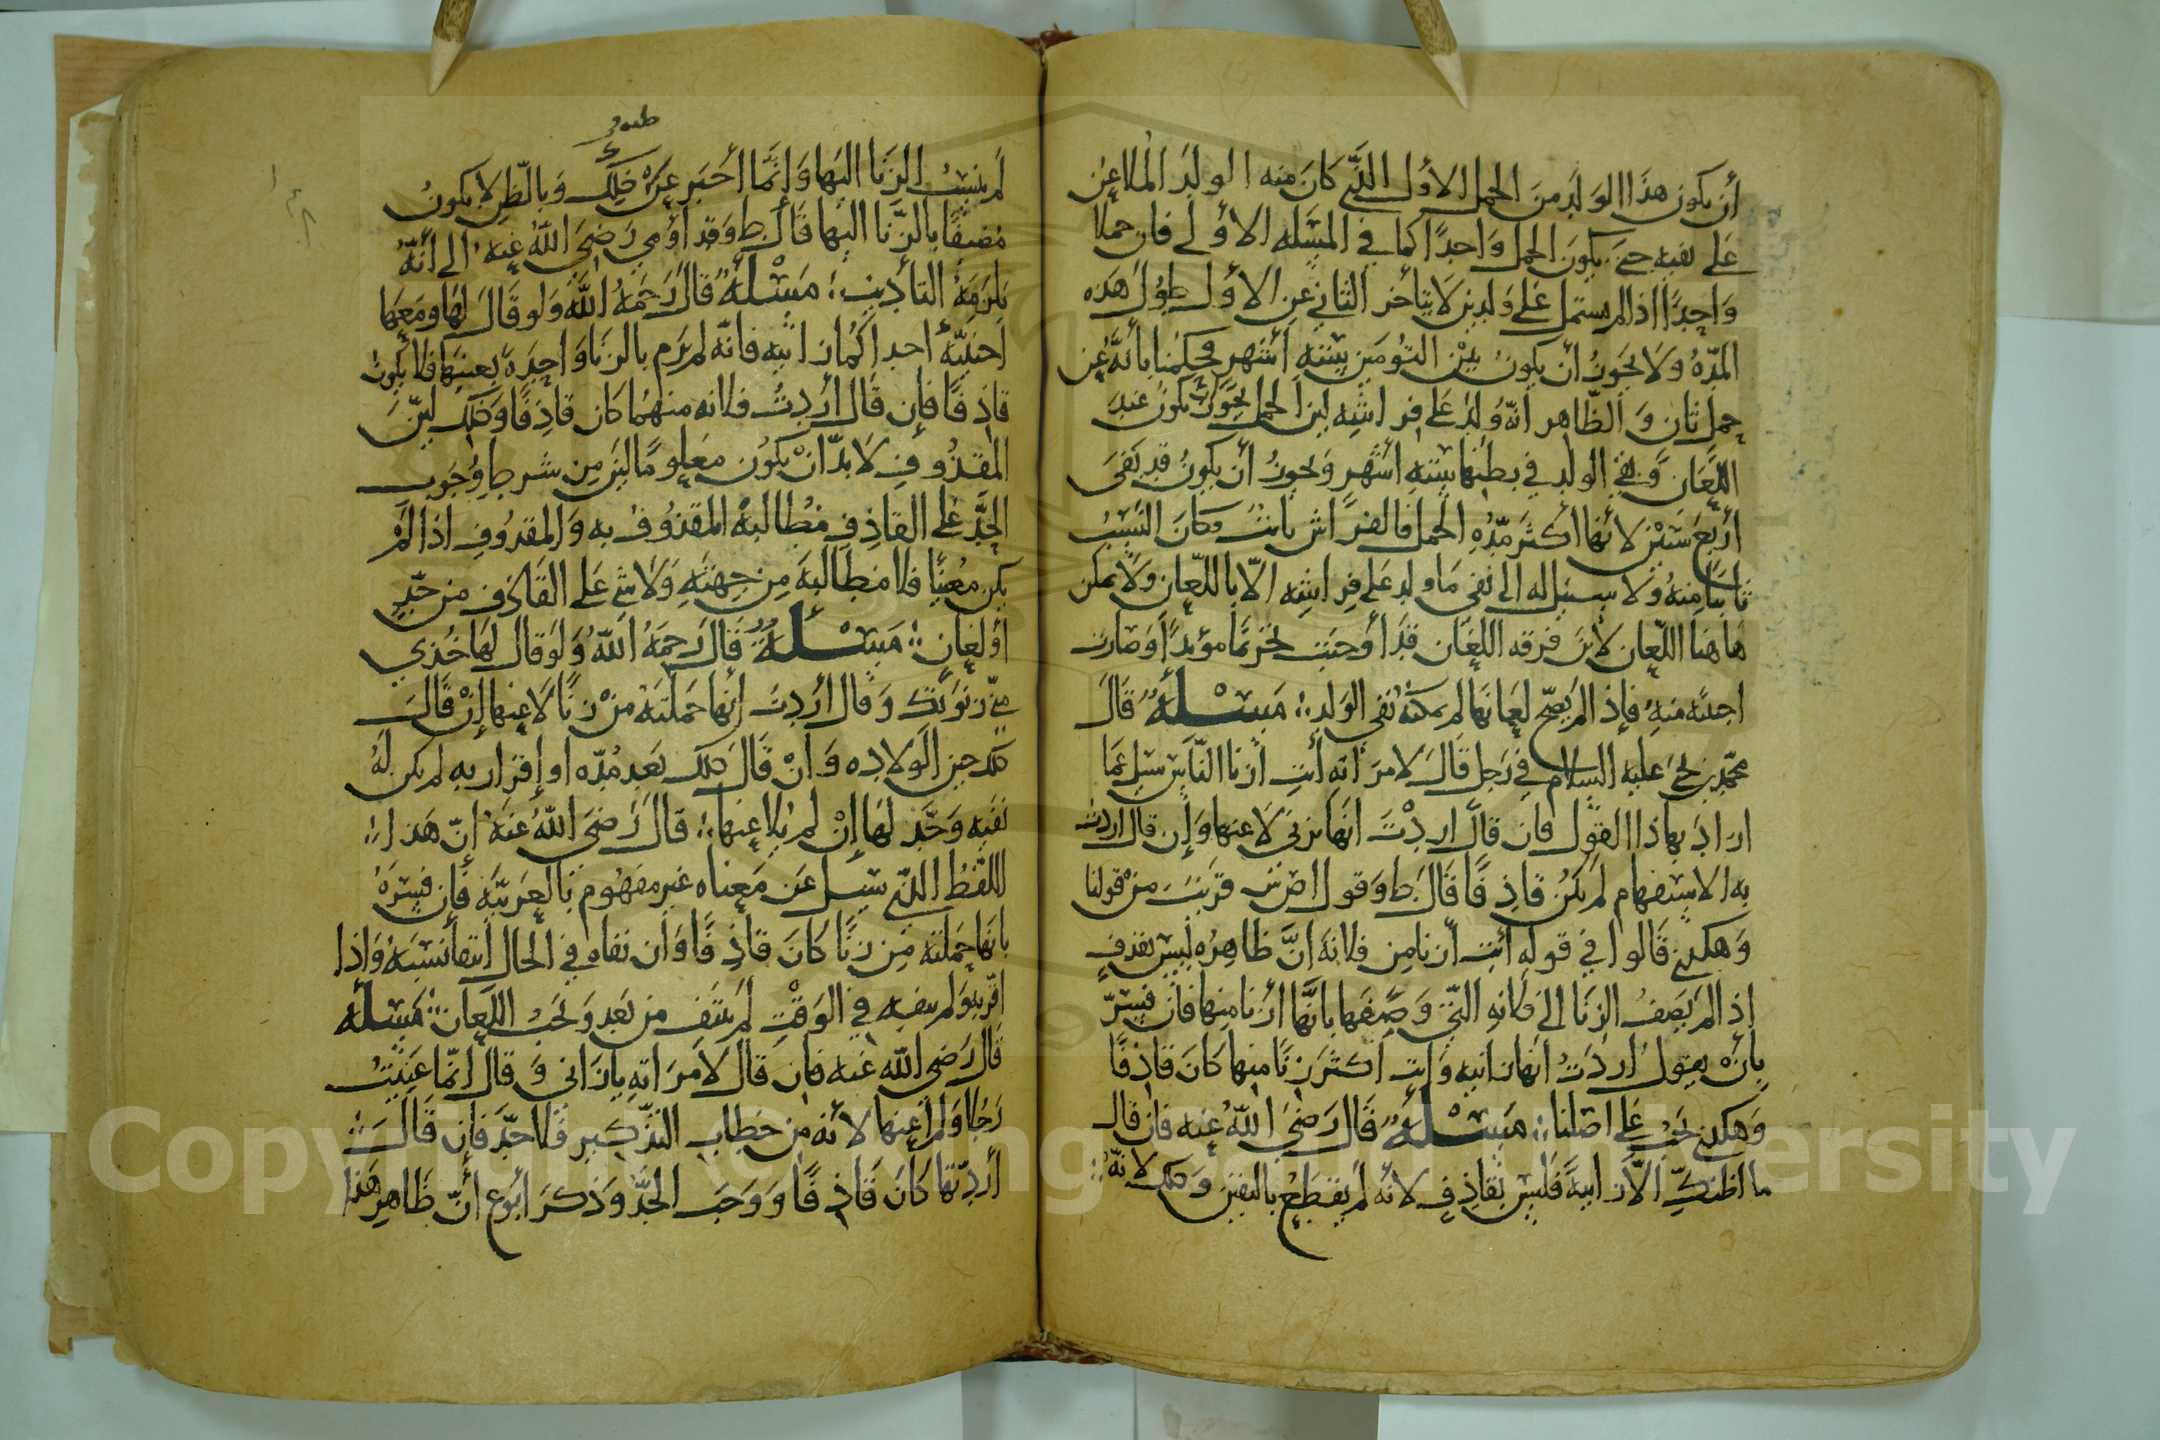 أن يكون هذا الولد من الحمل الأول الذي كان منه الولد الملاعن
على نفيه حتى يكون الحمل واحدًا كما في المسئله الاولى فان حملا
واحدًا اذا لم يستمل على ولدين لا يتأخر الثاني عن الأول طول هذه
المدّه ولا يجوز أن يكون بين التؤمين ستة أشهر فحكمنا بأنه عن
حمل ثان والظّاهر انه ولد على فراشه لين الحمل يجوز يكون عند
اللّعان ونفي الولد في بطنها ستة أشهر ويجوز أن يكون قد نفى
أربع سنين لأنها أكثر مدّه الحمل فالفراش بانت وكان النسب
ثابتا منه ولا سبيل له الى نفي ما ولد على فراشه الّا باللّعان ولا يمكن
هاهنا اللّعان لان فرقه اللّعان قد أوجبت تحريما مؤبدًا وصارت
اجنبيه منه فإذا لم يصحّ لعانها لم يمكنه نفي الولد مسئلة قال
محمّد بن يحيى عليه السلام في رجل قال لامراته أنت ازنا النّاس سيل عما
اراد بهاذا القول فان قال اردت انها تزني لاعنها وإن قال اردت
به الاستفهام لم يكن قاذفًا قال ط وقول اصرنب قريب من قولنا
وهكذى قالوا في قوله أنت أزنا من فلانه انّ ظاهره ليس بقذف
إذا لم يضف الزنا الى فلانه التي وصفها بانّها ازنا منها فان فسرّ
بأن يقول اردت انها زانيه وانت اكثر زنًا منها كان قاذفًا
وهكذى يجب على اصلنا مسئلة قال رضي الله عنه فان قال
ما اظنك الّا زانية فليس بقاذف لانه لم يقطع باليقين وذلك لانّه
لم ينسب الزنا اليها وإنّما أخبر عن ظنه وبالظن لا يكون
مضيفًا بالزّنا اليها قال ط وقد أومى رضي الله عنه الى أنّه
يلزمه التأديب مسئلة قال رحمه الله ولو قال لها ومعها
أجنبيّه أحداكما زانيه فانّه لم يرم بالزنا واحدة بعينها فلا يكون
قاذفًا فإن قال أردت فلانه منهما كان قاذفًا وذلك لينّ
المقذوف لا بدّ انْ يكون معلومًا لين من شرط وجوب
الحدّ على القاذف مطالبة المقذوف به والمقذوف اذا لم
يكن معينًا فلا مطالبة من جهته ولا شي على القاذف من حدٍّ
أو لعان مسئلة قال رحمه الله ولو قال لها خذي
منّي زنوتك وقال أردت انها حملته من زنًا لاعنها إن قال
ذلك حين الولاده وانْ قال ذلك بعد مدّه او إقرار به لم يكن له
نفيه وحّد لها إنْ لم يلاعنها قال رضي الله عنه إنّ هذا
اللفظ الذي سيل عن معناه غير مفهوم بالعربيّة فإن فسره
بانها حملته من زنًا كان قاذفًا وان نفاه في الحال انتفا نسبه وإذا
اقرّ به ولم ينفه في الوقت لم ينتف من بعد ويجب اللّعان مسئلة
قال رضي الله عنه فان قال لامراته يازاني وقال انّما عنيت
رجلا ولم اعنها لأنه من خطاب التذكير فلا حدّ فإن قال
أردتها كان قاذفًا ووجب الحدّ وذكر ابوع أنّ ظاهر هذا
Copyright © King University